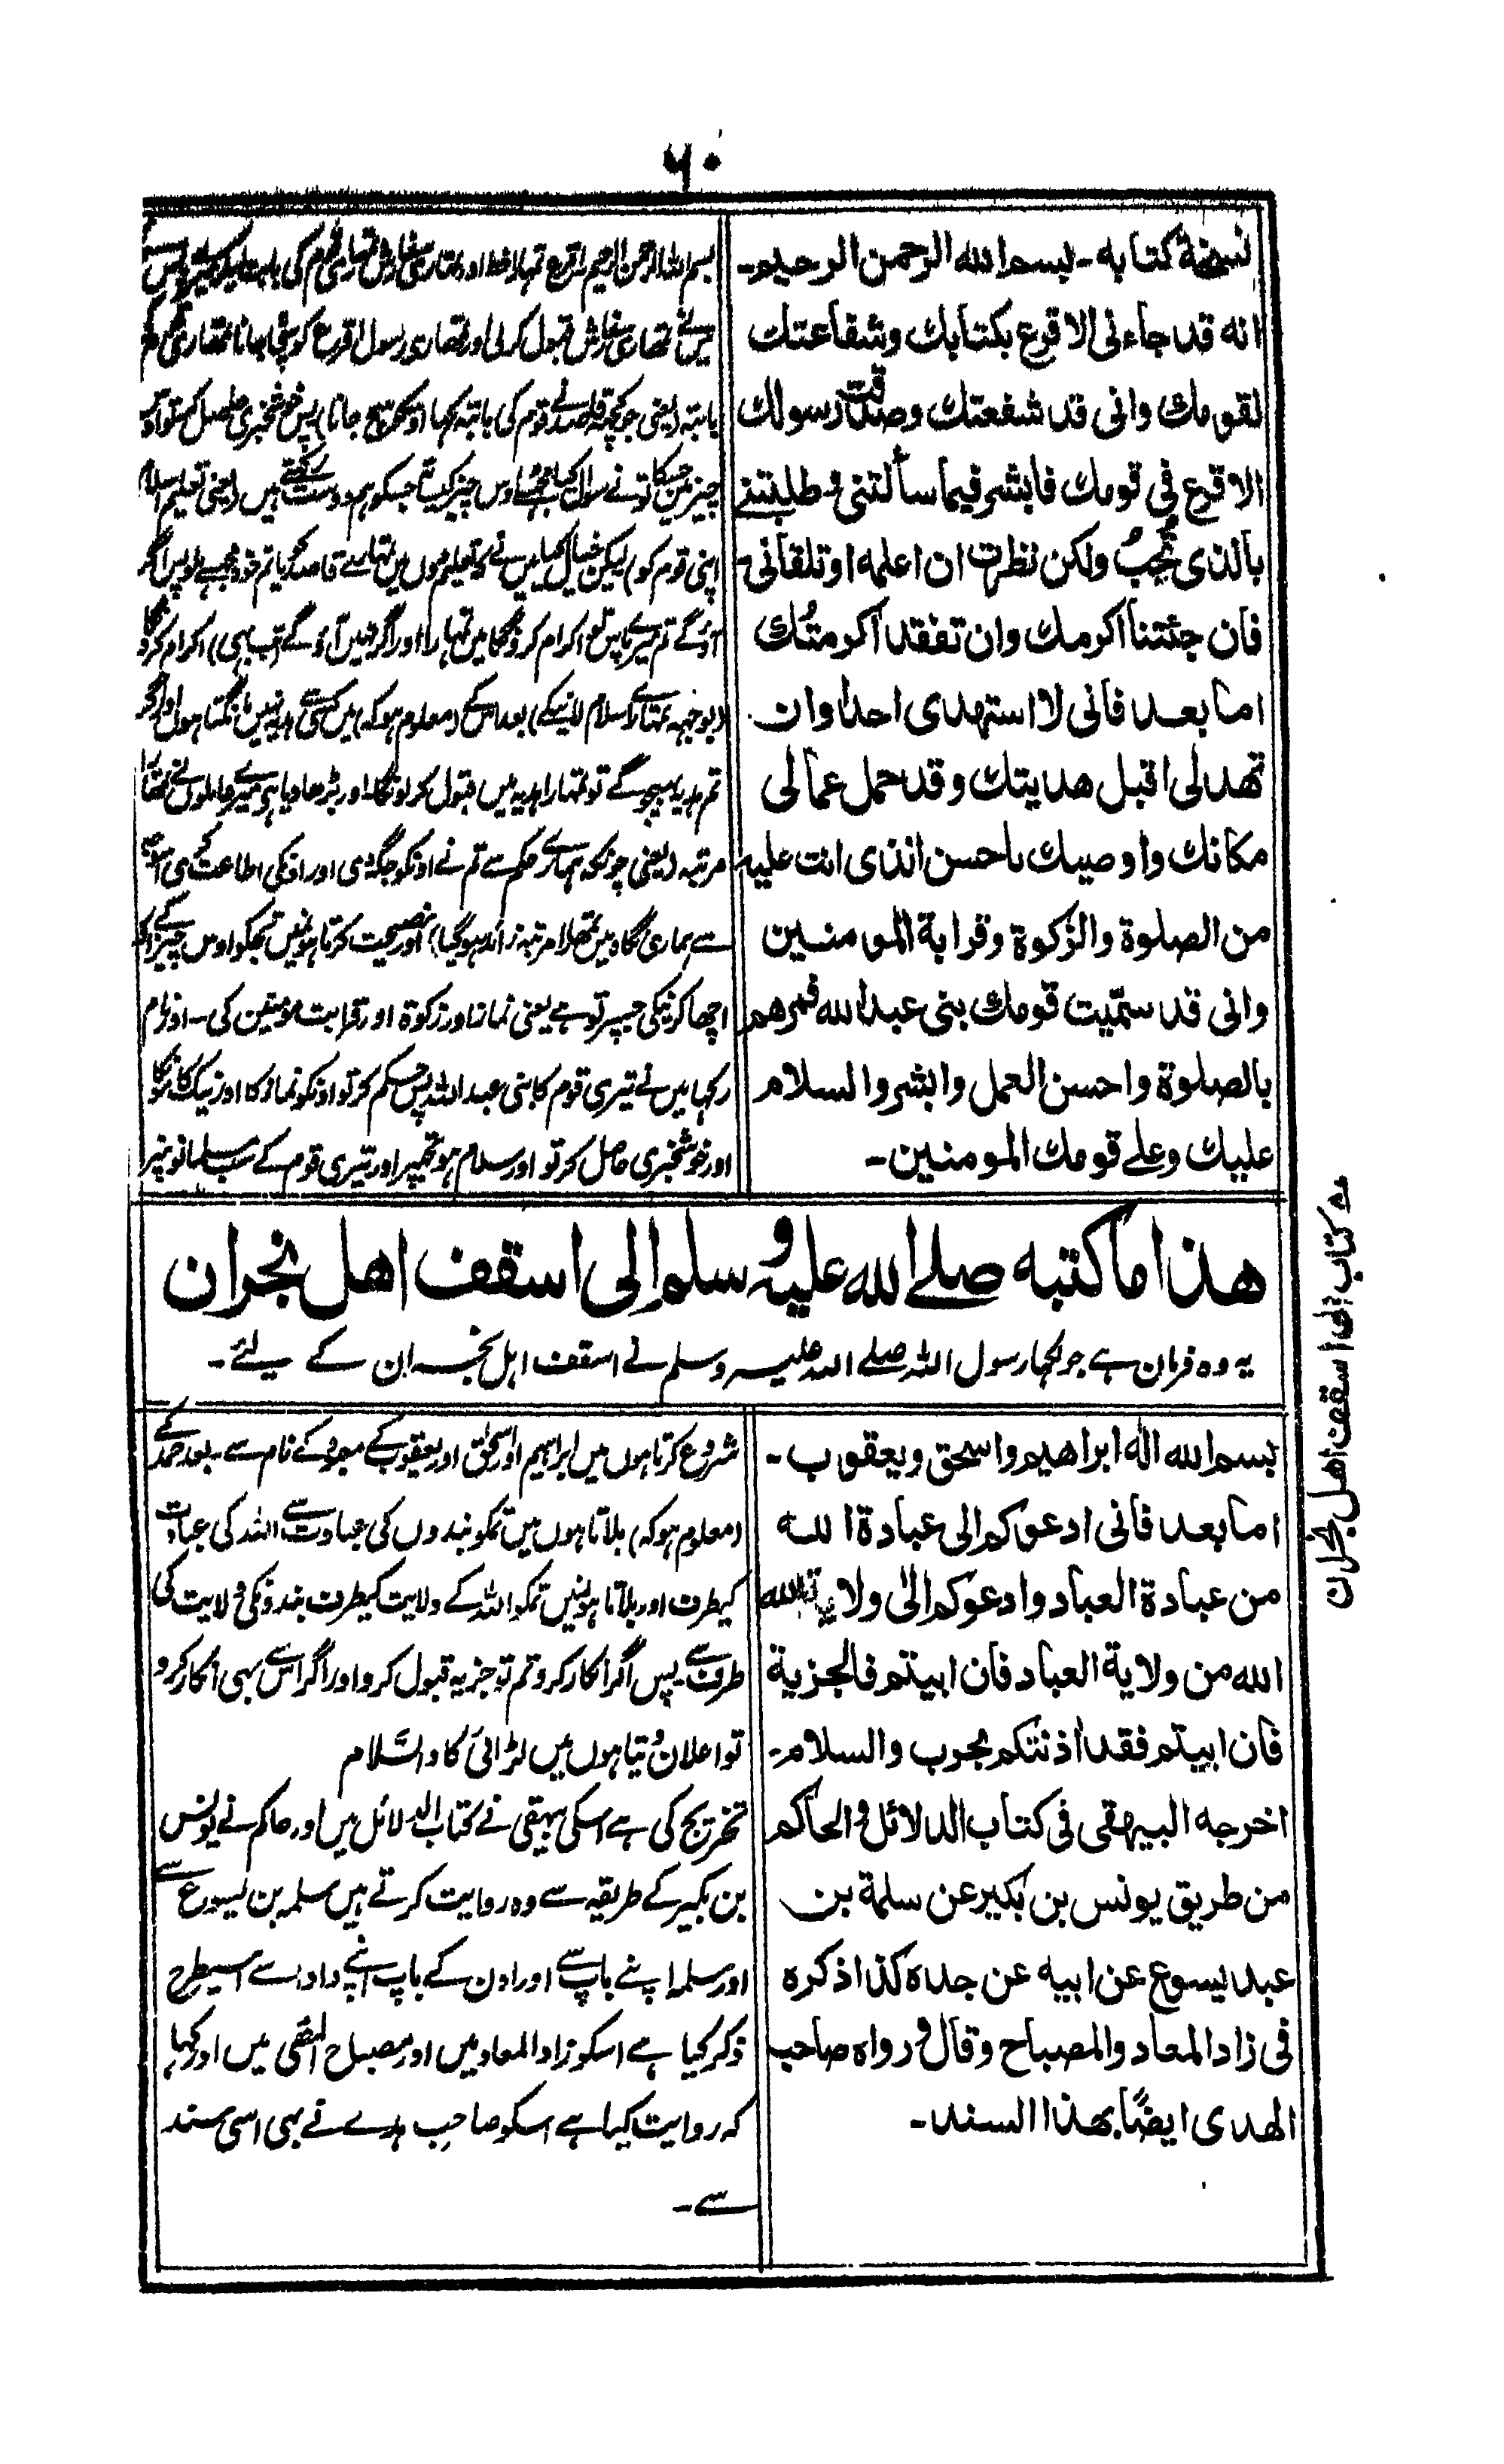 ۶۰
نسخة كتابه - بسم الله الرحمن الرحيم -
انه قد جاءنى الاقرع بكتابك وشفاعتك
لقومك وانى قد شفعتك وصدقت رسولك
الاقرع فى قومك فابشر فيما سألتنى وطلبتنى
بالذى تحب ولكن نظرت ان اعلمه او تلقانى -
فان جئتنا اكرمك وان تفقد اكرمتك
اما بعد فانى لا استهدى احدا وان
تهد لى اقبل هديتك وقد حمل عمالى
مكانك واوصيك باحسن الذى انت عليه
من الصلوة والزكوة وقرابة المومنين
وانى قد سمّيت قومك بنى عبد الله فمرهم
بالصلوة واحسن العمل وابشر والسلام
عليك وعلى قومك المومنين -
میں نے تمھاری سفارش قبول کرلی اور تمھاری رسول اقرع کو سچا جانا تمھاری قوم
اپنی قوم کو) لیکن خیال کیا میں نے
آؤگے تم میرے پاس تو اکرام کرونگا میں تمہارا اور اگر نہیں آؤ گے (تب بھی) اکرام کرونگا
(بوجہہ تمہارے اسلام لانیکے) بعد اس کے (معلوم ہو کہ) میں کسی سے ہدیہ نہیں مانگتا ہوں اور اگر
تم ہدیہ بہیجو گے تو تمہارا ہدیہ میں قبول کرلونگا اور بڑھا دیا ہی میرے عاملوں نے تمھارا
مرتبہ (یعنی چونکہ ہمارے حکم سے تم نے اونکو جگہ دی اور اونکی اطاعت کی
سے ہماری نگاہ میں تمھارا مرتبہ زائد ہوگیا) اور نصیحت کرتا ہوں میں تجھکو اوس چیز کے
اچھا کرنیکی جسپر تو ہے یعنی نماز اور زکوۃ اور قرابت مومنین کی - اور نام
رکہا میں نے تیری قوم کا بنی عبد اللہ پس حکم کر تو اونکو نماز کا اور نیک کامونکا
اور خوشخبری حاصل کر تو اور سلام ہو تجھپر اور تیری قوم کے سب مسلمانونپر
هذا ما كتبه صلى الله عليه وسلم الى اسقف اهل نجران
یہ وہ فرمان ہے جو لکہا رسول اللہ صلے اللہ علیہ وسلم نے اسقف اہل نجران کے لیئے -
كتاب الى اسقف اهل نجران
بسم الله اله ابراهيم واسحق ويعقوب -
اما بعد فانى ادعوكم الى عبادة الله
من عبادة العباد وادعوكم الى ولاية الله
الله من ولاية العباد فان ابيتم فالجزية
فان ابيتم فقد اذنتكم بحرب والسلام -
اخرجه البيهقى فى كتاب الدلائل والحاكم
من طريق يونس بن بكير عن سلمة بن
عبد يسوع عن ابيه عن جده كذا ذكره
فى زاد المعاد والمصباح وقال ورواه صاحب
الهدى ايضًا بهذا السند -
شروع کرتا ہوں میں ابراہیم اور اسحٰق اور یعقوب کے معبود کے نام سے - بعد حمد کے
(معلوم ہو کہ) بلاتا ہوں میں تمکو بندوں کی عبادت سے اللہ کی عبادت
کیطرف اور بلاتا ہوں میں تمکو اللہ کے ولایت کیطرف بندونکی ولایت کی
طرف سے پس اگر انکار کرو تم تو جزیہ قبول کرو اور اگر اس سے بہی انکار کرو
تو اعلان دیتا ہوں میں لڑائی کا والسّلام
تخریج کی ہے اسکی بیہقی نے کتاب الدلائل میں اور حاکم نے یونس
بن بکیر کے طریقہ سے وہ روایت کرتے ہیں سلمہ بن یسوع سے
اور سلمہ اپنے باپ سے اور اون کے باپ اپنے دادا سے اسیطرح
ذکر کیا ہے اسکو زاد المعاد میں اور مصباح المضی میں اور کہا ہے
کہ روایت کیا ہے اسکو صاحب ہدے نے بہی اسی سند
سے -